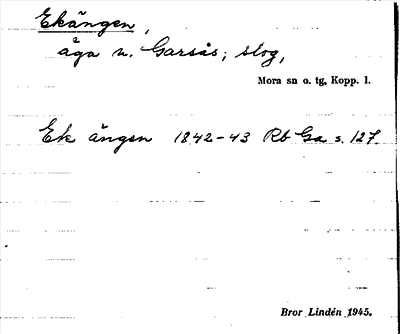 Ekängen,
äga n. Garsås; slog,
Mora sn o. tg, Kopp. l.
Ek ängen 1842-43 Rb Ga s. 127.
Bror Lindén 1945.